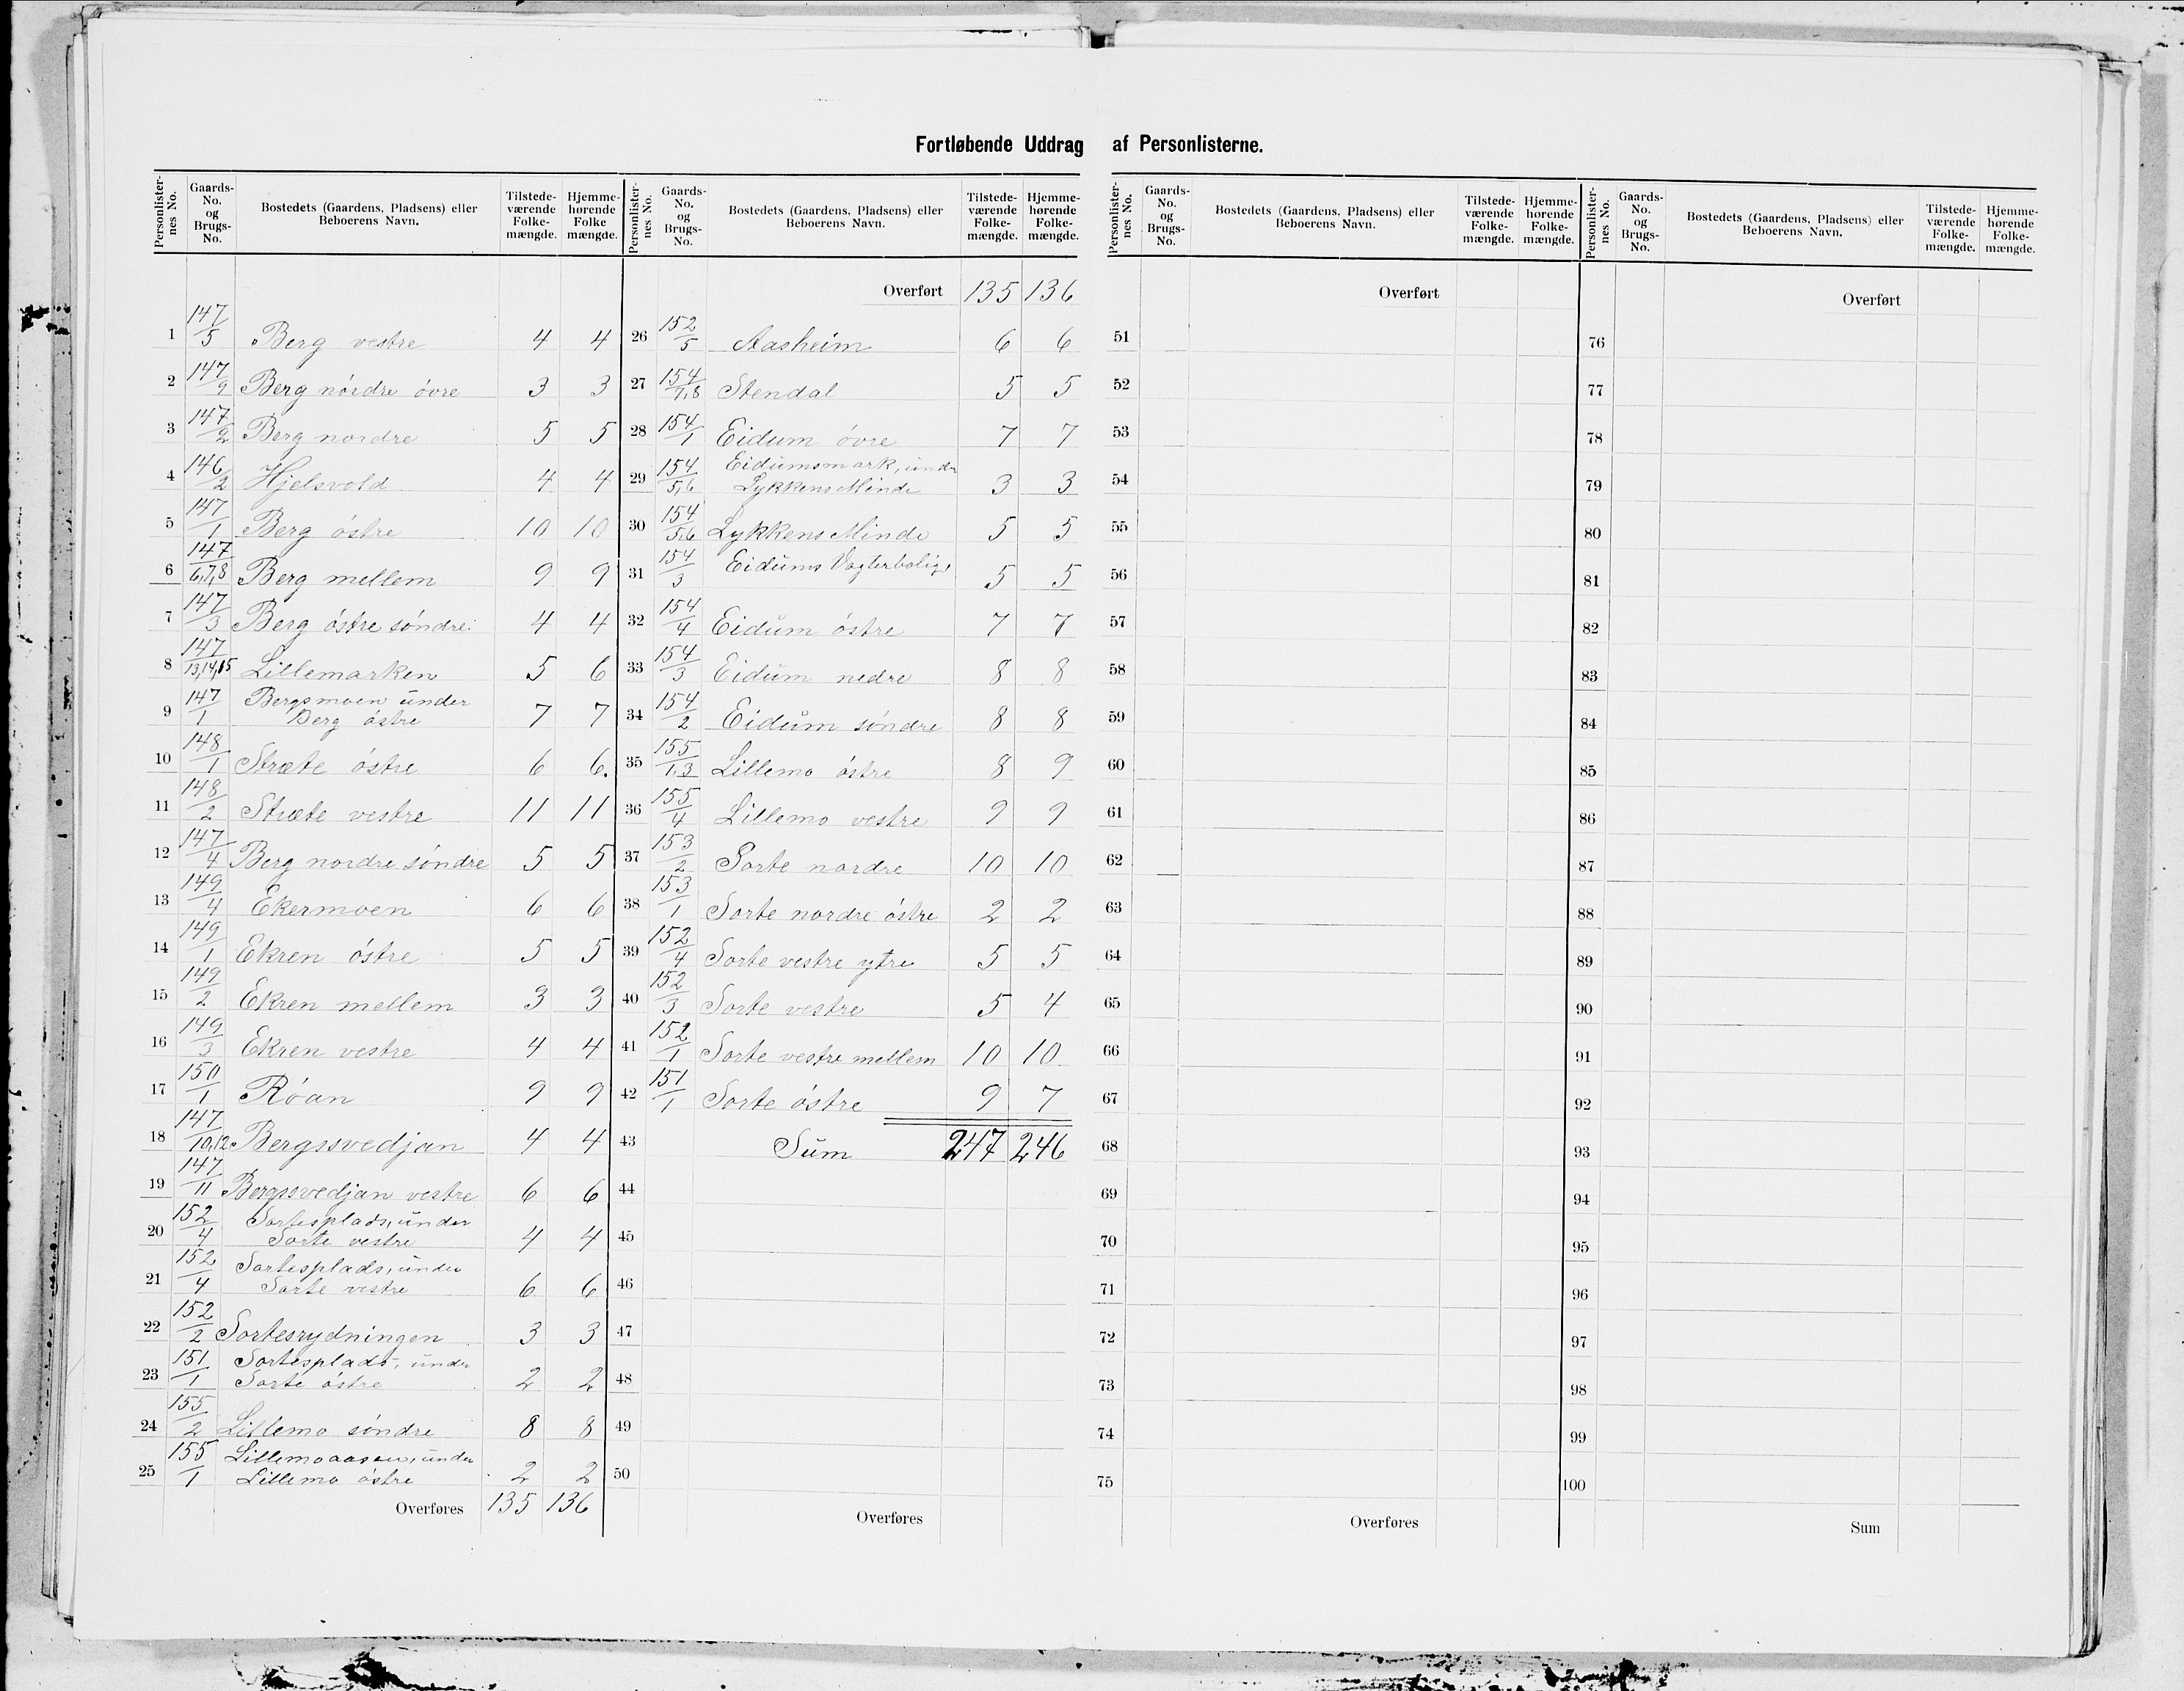 Fortløbende Uddrag af Personlisterne.
Personlisternes No. Gaards-No. og Brugs-No. Bostedets (Gaardens, Pladsens) eller Beboerens Navn. Tilstedeværende Folkemængde. Hjemmehørende Folkemængde.
1 147/5 Berg vestre 4 4
2 147/9 Berg nordre övre 3 3
3 147/2 Berg nordre 5 5
4 146/2 Hjelsvold 4 4
5 147/1 Berg östre 10 10
6 147/6,7,8 Berg mellem 9 9
7 147/3 Berg östre söndre 4 4
8 147/13,14,15 Lillemarken 5 6
9 147/1 Bergsmoen under
Berg östre 7 7
10 148/1 Stræte östre 6 6.
11 148/2 Stræte vestre 11 11
12 147/4 Berg nordre söndre 5 5
13 149/4 Ekermoen 6 6
14 149/1 Ekren östre 5 5
15 149/2 Ekren mellem 3 3
16 149/3 Ekren vestre 4 4
17 150/1 Röan 9 9
18 147/10,12 Bergssvedjan 4 4
19 147/11 Bergssvedjan vestre 6 6
20 152/4 Sortesplads, under
Sorte vestre 4 4
21 152/4 Sortesplads, under
Sorte vestre 6 6
22 152/2 Sortesrydningen 3 3
23 151/1 Sortesplads, under
Sorte östre 2 2
24 155/2 Lillemo söndre 8 8
25 155/1 Lillemoaasen, under
Lillemo östre 2 2
Overføres 135 136
Personlisternes No. Gaards-No. og Brugs-No. Bostedets (Gaardens, Pladsens) eller Beboerens Navn. Tilstedeværende Folkemængde. Hjemmehørende Folkemængde.
Overført 135 136
26 152/5 Aasheim 6 6
27 154/7,8 Stendal 5 5
28 154/1 Eidum övre 7 7
29 154/5,6 Eidumsmark, under
Lykkens Minde 3 3
30 154/5,6 Lykkens Minde 5 5
31 154/3 Eidums Vogterbolig 5 5
32 154/4 Eidum östre 7 7
33 154/3 Eidum nedre 8 8
34 154/2 Eidum söndre 8 8
35 155/1,3 Lillemo östre 8 9
36 155/4 Lillemo vestre 9 9
37 153/2 Sorte nordre 10 10
38 153/1 Sorte nordre östre 2 2
39 152/4 Sorte vestre ytre 5 5
40 152/3 Sorte vestre 5 4
41 152/1 Sorte vestre mellem 10 10
42 151/1 Sorte östre 9 7
43 Sum 247 246
44
45
46
47
48
49
50
Overføres
Personlisternes No. Gaards-No. og Brugs-No. Bostedets (Gaardens, Pladsens) eller Beboerens Navn. Tilstedeværende Folkemængde. Hjemmehørende Folkemængde.
Overført
51
52
53
54
55
56
57
58
59
60
61
62
63
64
65
66
67
68
69
70
71
72
73
74
75
Overføres
Personlisternes No. Gaards-No. og Brugs-No. Bostedets (Gaardens, Pladsens) eller Beboerens Navn. Tilstedeværende Folkemængde. Hjemmehørende Folkemængde.
Overført
76
77
78
79
80
81
82
83
84
85
86
87
88
89
90
91
92
93
94
95
96
97
98
99
100
Sum